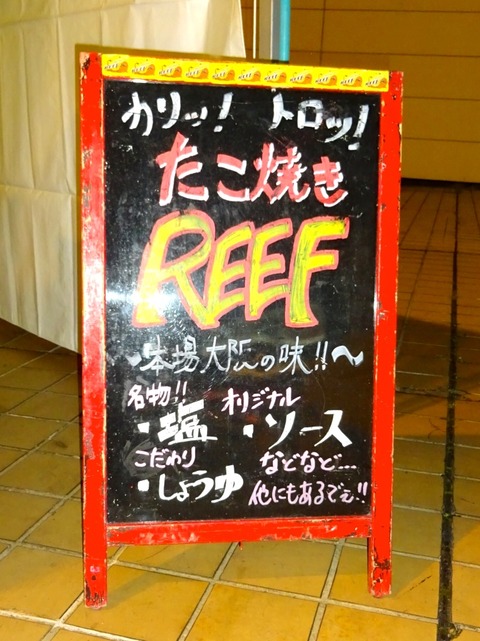 カリッ! トロッ!
たこ焼き
REEF
〜本場大阪の味!!〜
名物!!
・塩
オリジナル
・ソース
こだわり
・しょうゆ
などなど...
他にもあるでぇ!!